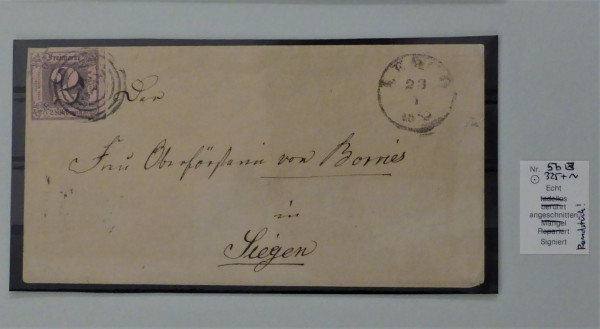 Freimarke
LEMGO
23
1
Der
Frau Oberförsterin von Borries
in
Siegen
Nr. 5b
325,-
Echt
tadellos
berührt
angeschnitten
Mängel
Repariert
Signiert
Randstück!